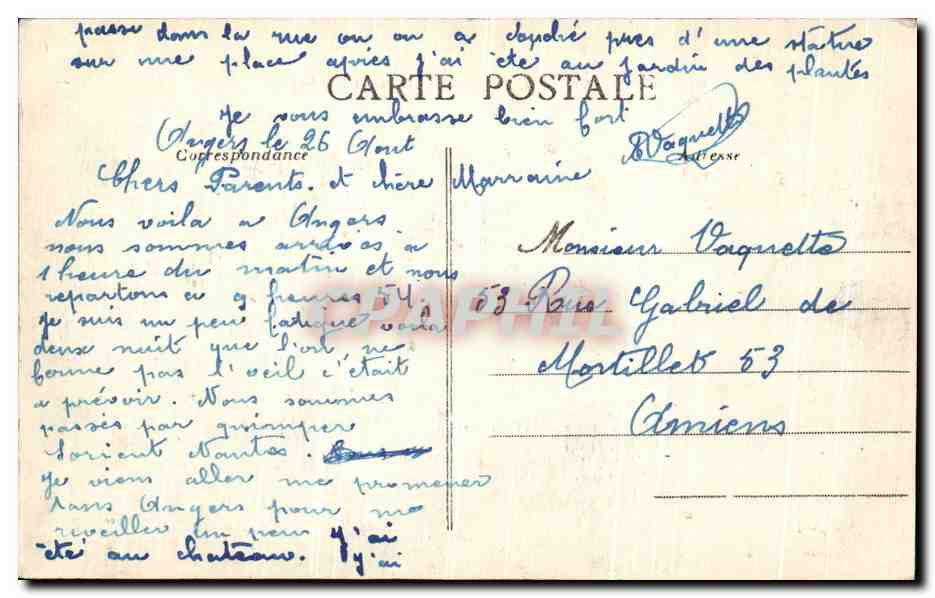 passé dans la rue ou on a
près d'une statue
sur une place après j'ai été au jardin des plantes
CARTE POSTALE
Je vous embrasse bien fort
Vaquette
Angers le 26 Aout
Correspondance
Adresse
Chers Parents. et chère Marraine
Nous voila a Angers
nous sommes arrivés a
1 heure du matin et nous
repartons a 9 heures 54.
Je suis un peu fatigué voila
deux nuit que l'on ne
ferme pas l'oeil c'était
a prévoir. Nous sommes
passés par quimper
Lorient Nantes.
Je viens aller me promener
dans Angers pour me
reveiller un peu j'ai
été au chateau. j'ai
Monsieur Vaquette
53 Rue Gabriel de
Mortillet 53
Amiens
CPAPHIL